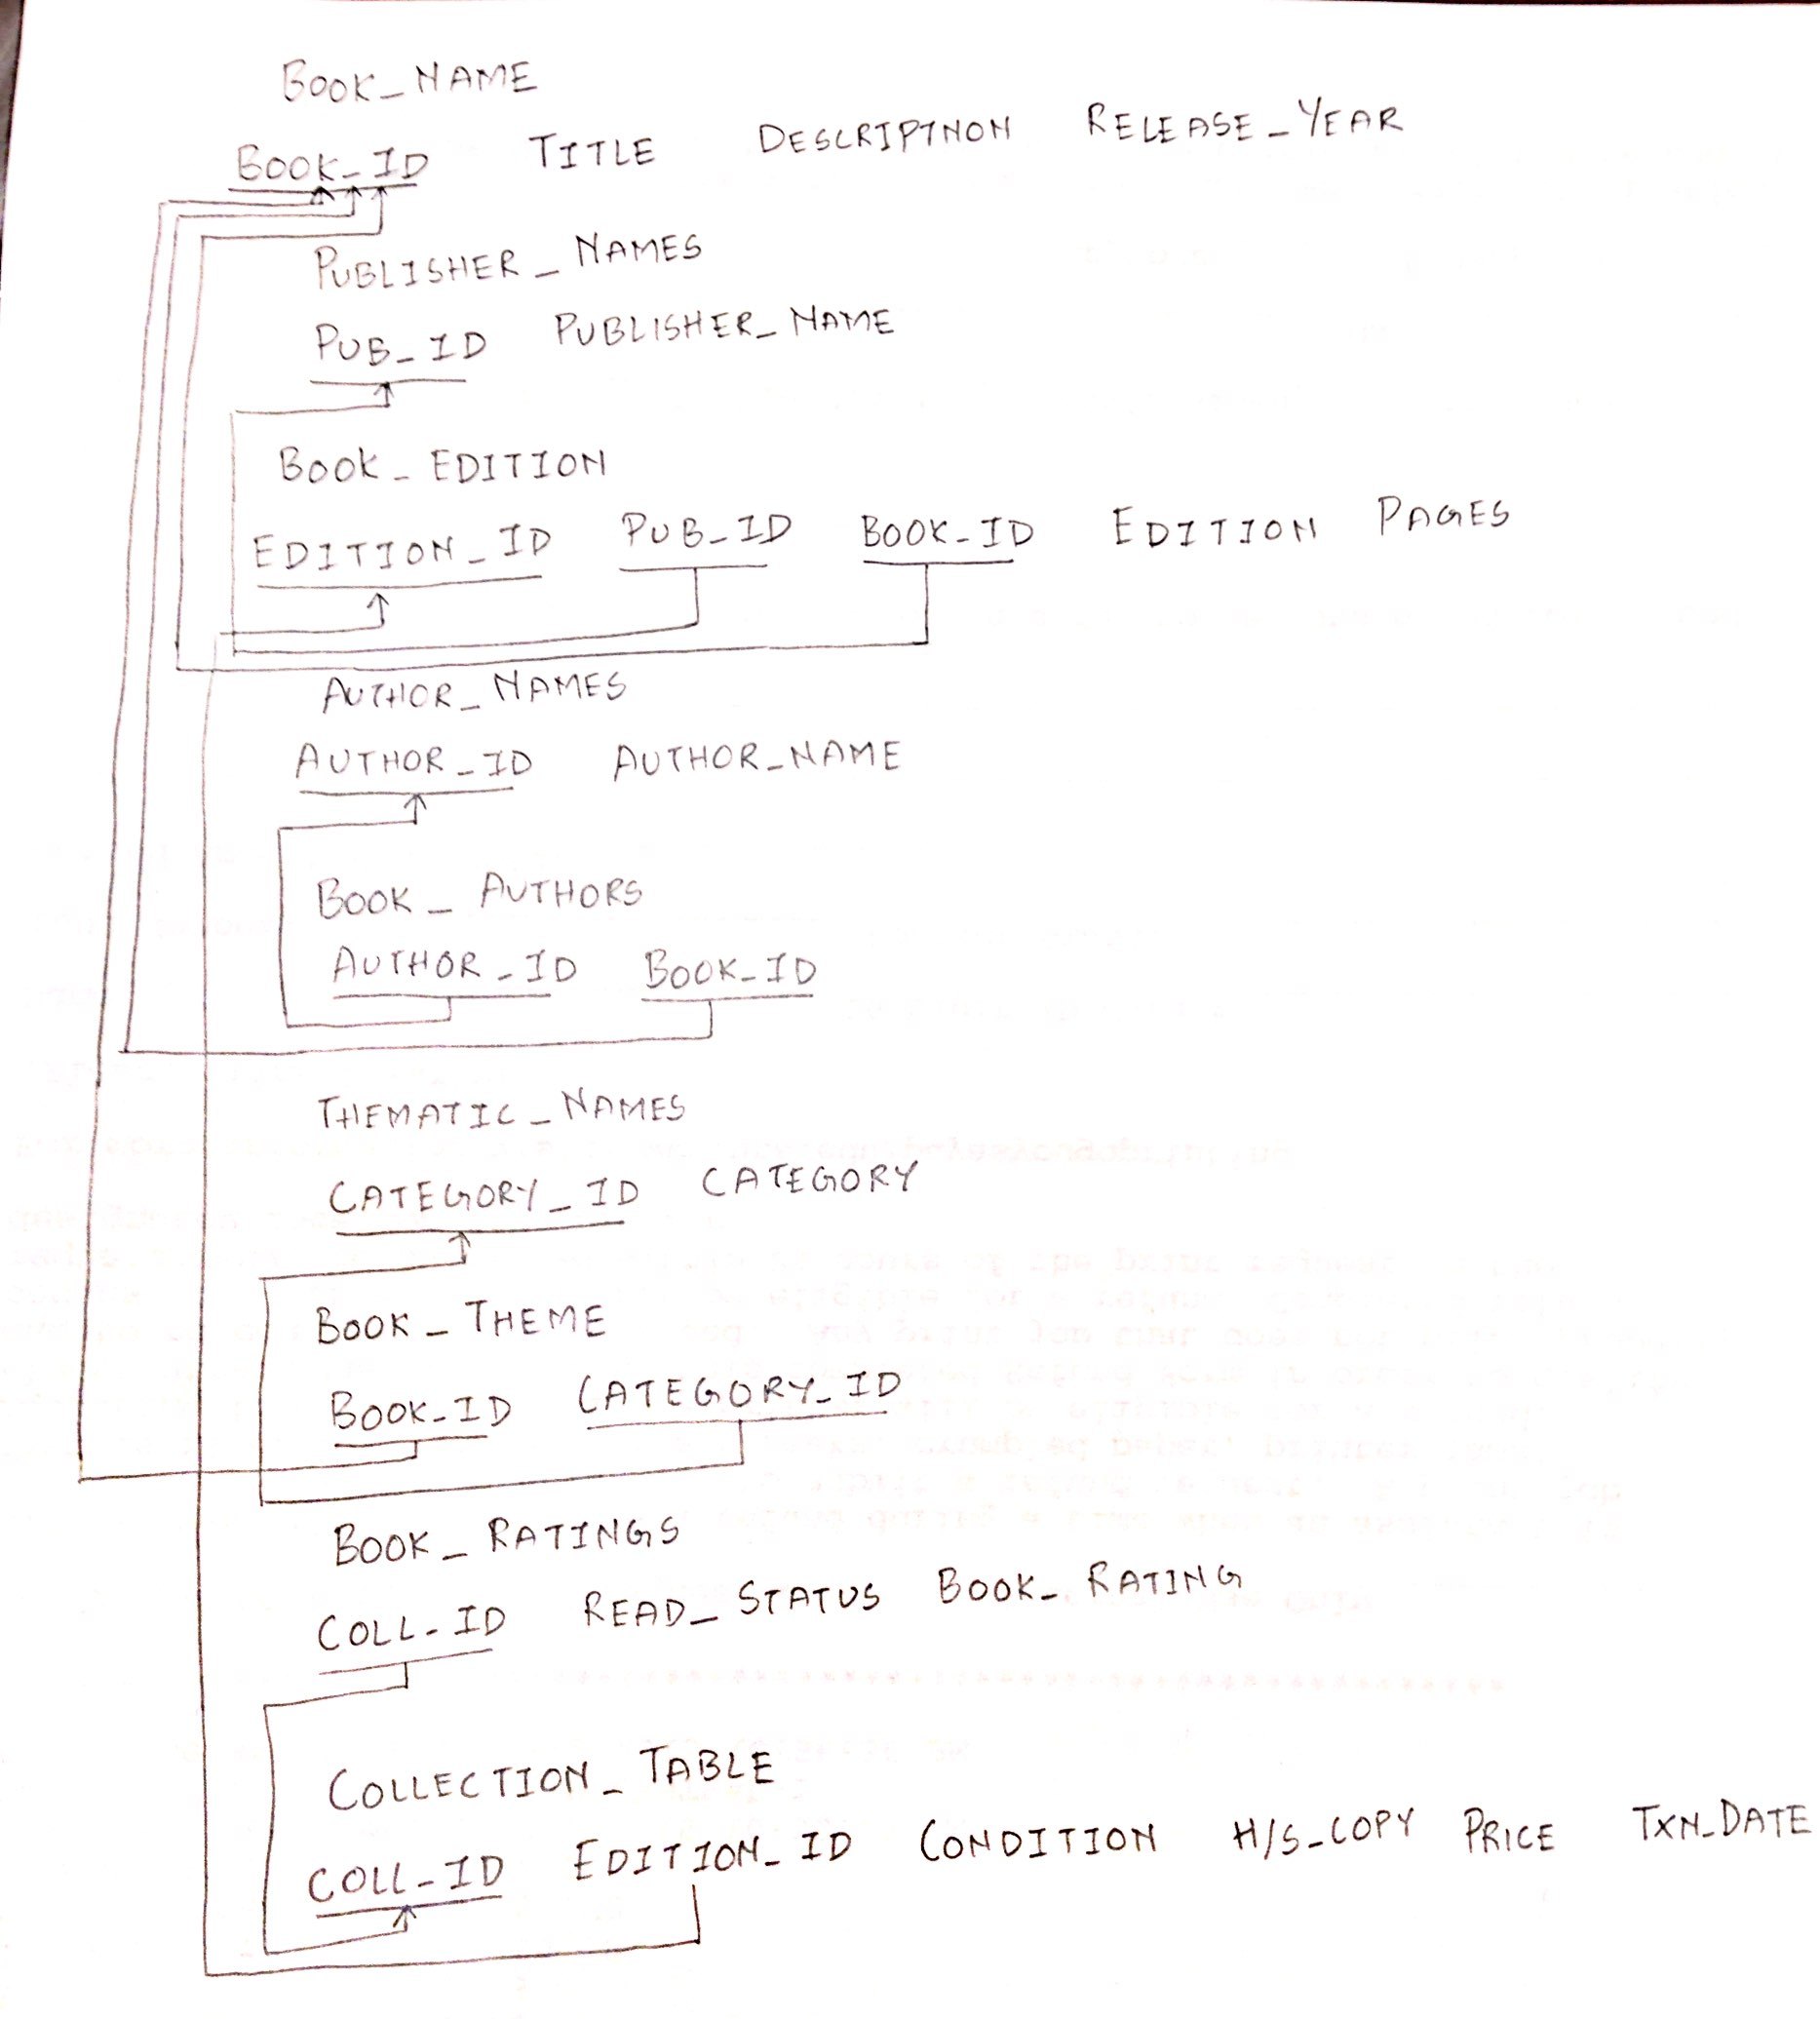 BOOK_NAME
BOOK_ID TITLE DESCRIPTION RELEASE_YEAR
PUBLISHER_NAMES
PUB_ID PUBLISHER_NAME
BOOK_EDITION
EDITION_ID PUB_ID BOOK_ID EDITION PAGES
AUTHOR_NAMES
AUTHOR_ID AUTHOR_NAME
BOOK_AUTHORS
AUTHOR_ID BOOK_ID
THEMATIC_NAMES
CATEGORY_ID CATEGORY
BOOK_THEME
BOOK_ID CATEGORY_ID
BOOK_RATINGS
COLL_ID READ_STATUS BOOK_RATING
COLLECTION_TABLE
COLL_ID EDITION_ID CONDITION H/S_COPY PRICE TXN_DATE